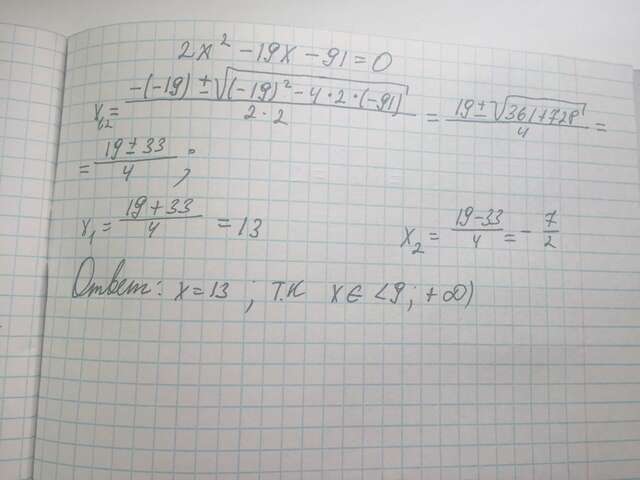 2x² - 19x - 91 = 0
x₁,₂ = (-(-19) ± √((-19)² - 4·2·(-91))) / (2·2) = (19 ± √(361+728)) / 4 =
= (19 ± 33) / 4 ;
x₁ = (19 + 33) / 4 = 13 x₂ = (19-33) / 4 = - 7/2
Ответ: x = 13 ; т.к x ∈ <9; +∞)